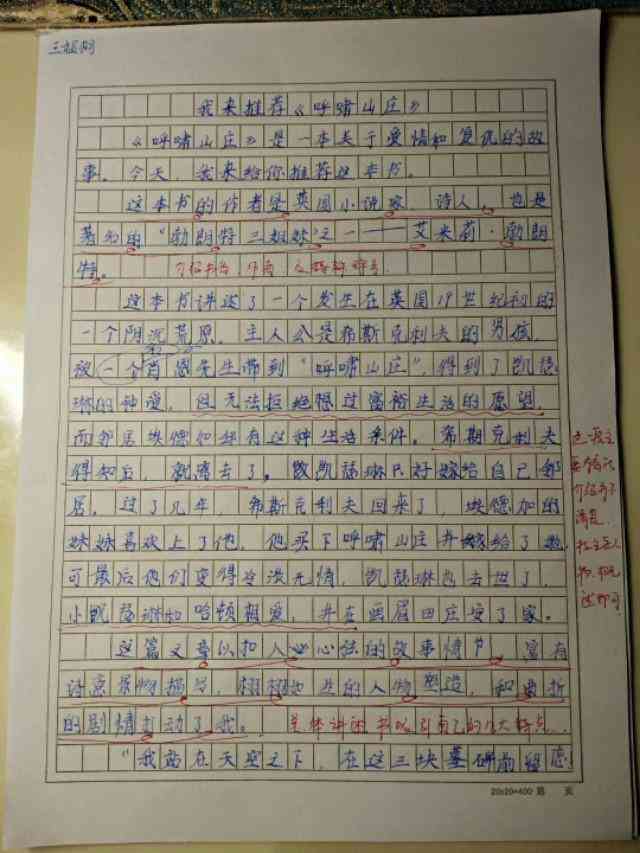 我来推荐《呼啸山庄》
《呼啸山庄》是一本关于爱情和复仇的故
事。今天，我来给你推荐这本书。
这本书的作者是英国小说家、诗人，也是
著名的“勃朗特三姐妹”之一——艾米莉·勃朗
特。
这本书讲述了一个发生在英国19世纪初的
一个阴沉荒原，主人公是希斯克利夫的男孩，
被一个肖恩先生带到“呼啸山庄”，得到了凯瑟
琳的钟爱，但无法拒绝想过富裕生活的愿望，
而邻居埃德加却有这种生活条件。希斯克利夫
得知后，就离去了。凯瑟琳只好嫁给自己邻
居。过了几年，希斯克利夫回来了，埃德加的
妹妹喜欢上了他，他买下呼啸山庄并嫁给了她
可最后他们变得冷漠无情，凯瑟琳也去世了，
小凯瑟琳和哈顿相爱，并在画眉田庄安了家。
这篇文章以扣人心弦的故事情节，富有
诗意景物描写，栩栩如生的人物塑造，和曲折
的剧情打动了我。
“我站在天空之下，在这三块墓碑前
20x20=400 第 页